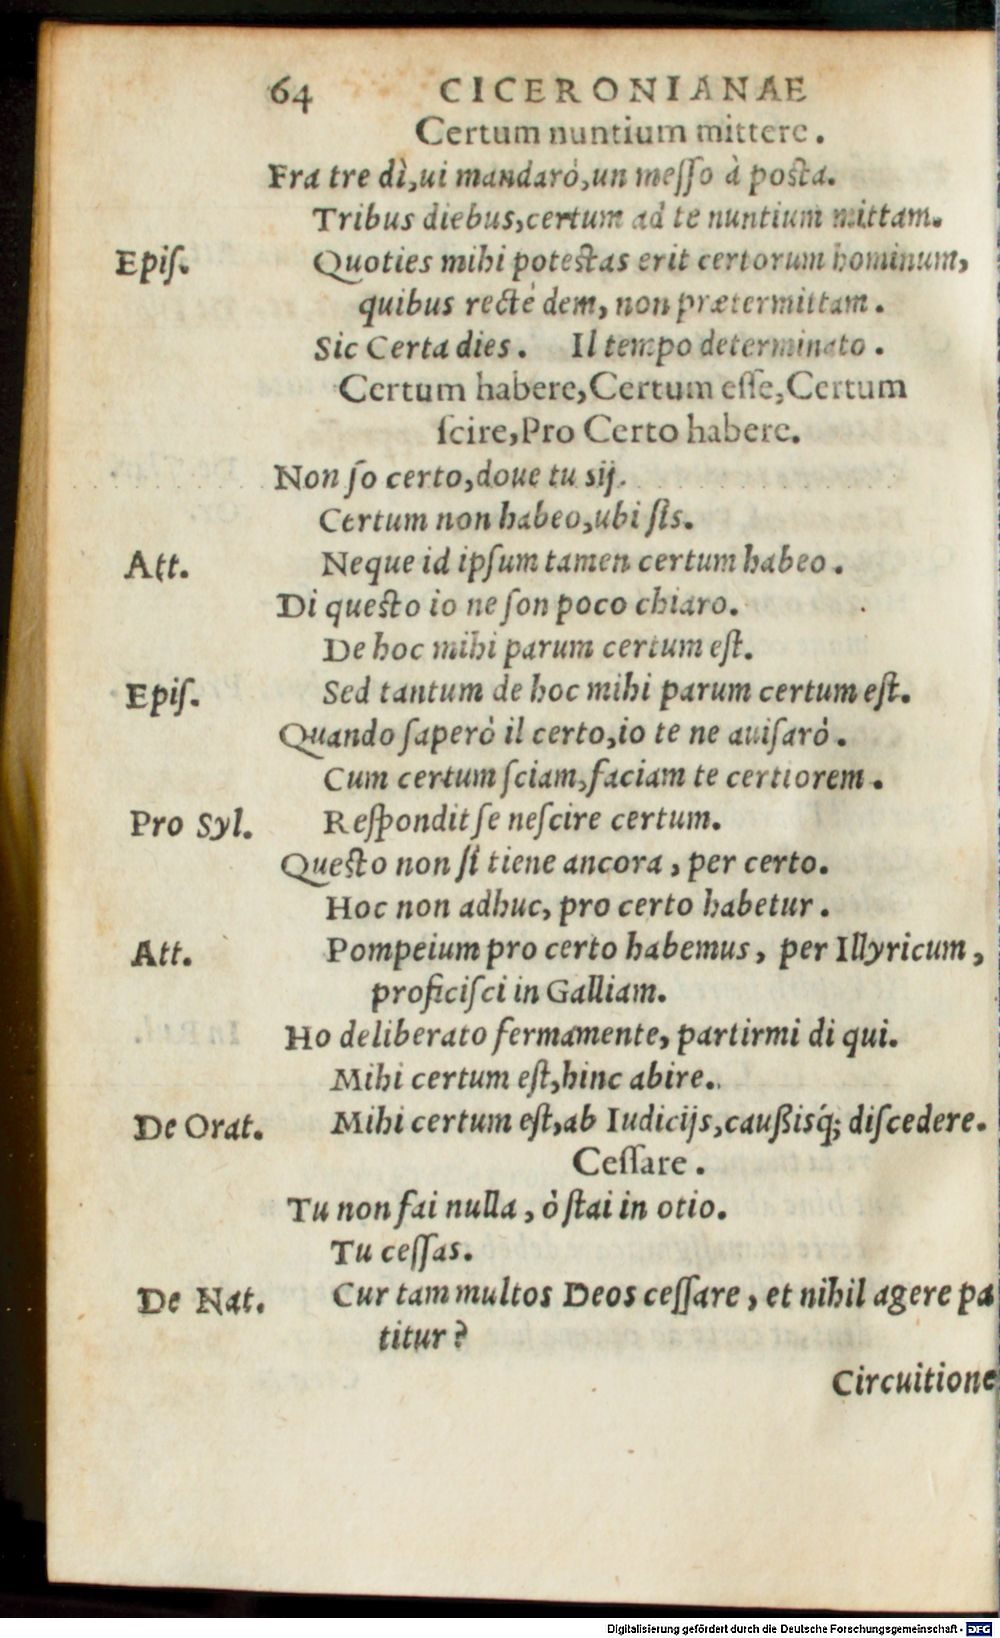 64 CICERONIANAE
Certum nuntium mittere.
Fra tre dì, ui mandarò, un meſſo à poſta.
Tribus diebus, certum ad te nuntium mittam.
Epiſ. Quoties mihi poteſtas erit certorum hominum,
quibus rectè dem, non prætermittam.
Sic Certa dies. Il tempo determinato.
Certum habere, Certum eſſe, Certum
ſcire, Pro Certo habere.
Non ſo certo, doue tu sij.
Certum non habeo, ubi ſis.
Att. Neque id ipſum tamen certum habeo.
Di queſto io ne ſon poco chiaro.
De hoc mihi parum certum eſt.
Epiſ. Sed tantum de hoc mihi parum certum eſt.
Quando ſaperò il certo, io te ne auiſarò.
Cum certum ſciam, faciam te certiorem.
Pro Syl. Reſpondit ſe neſcire certum.
Queſto non ſi tiene ancora, per certo.
Hoc non adhuc, pro certo habetur.
Att. Pompeium pro certo habemus, per Illyricum,
proficiſci in Galliam.
Ho deliberato fermamente, partirmi di qui.
Mihi certum eſt, hinc abire.
De Orat. Mihi certum eſt, ab Iudicijs, caußisq́; diſcedere.
Ceſſare.
Tu non fai nulla, ò ſtai in otio.
Tu ceſſas.
De Nat. Cur tam multos Deos ceſſare, et nihil agere pa
titur?
Circuitione
Digitalisierung gefördert durch die Deutsche Forschungsgemeinschaft - DFG